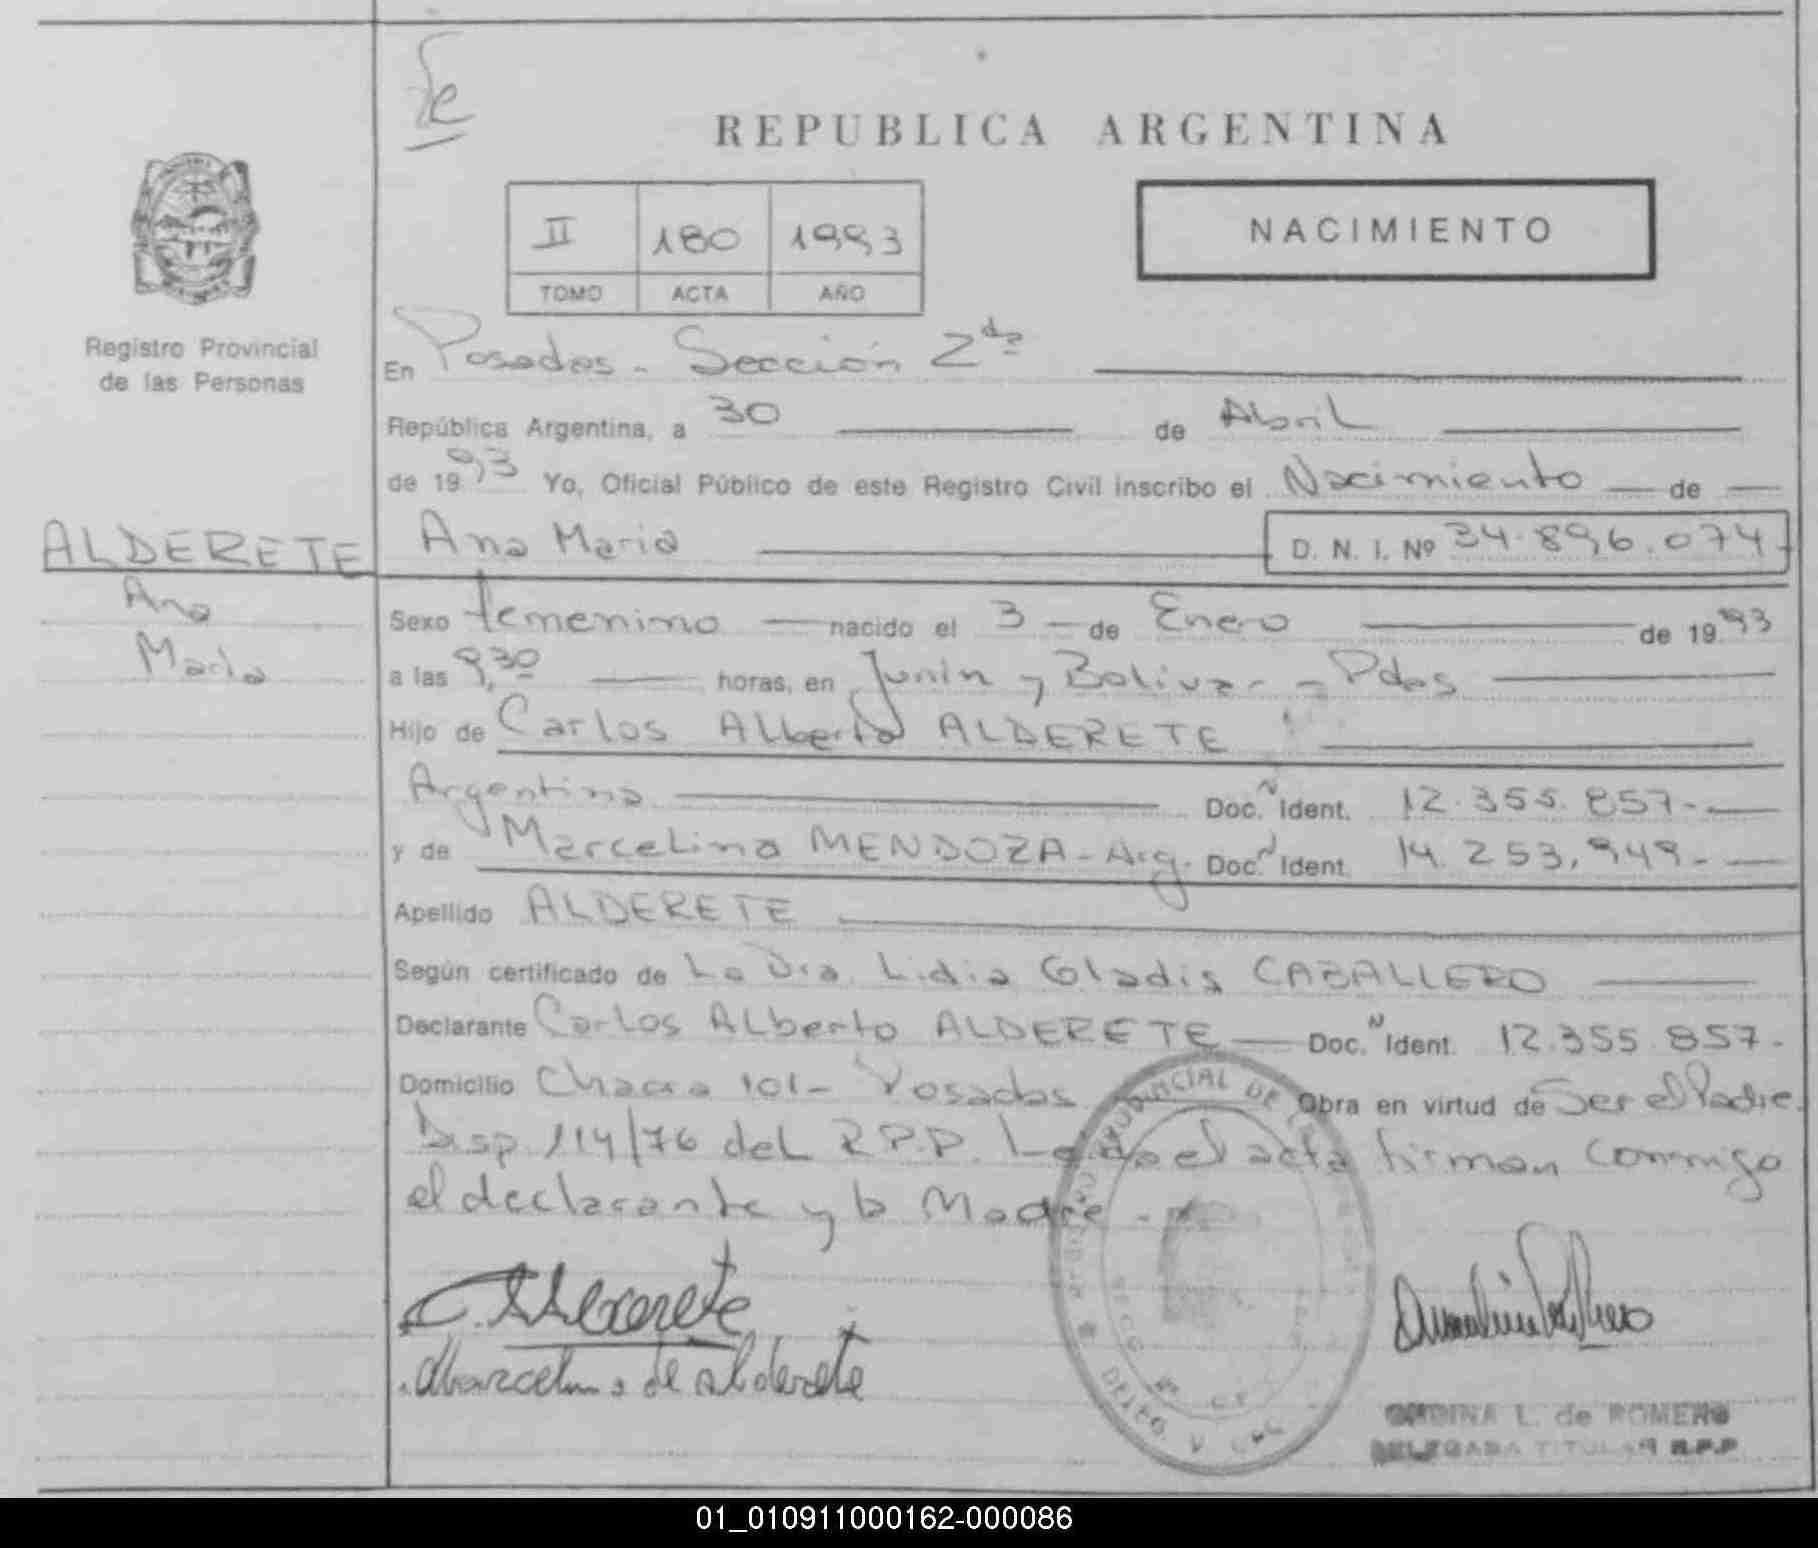 Fe
REPUBLICA ARGENTINA
II 180 1993
TOMO ACTA AÑO
NACIMIENTO
Registro Provincial
de las Personas
En Posadas - Sección 2da
República Argentina, a 30 de Abril
de 1993 Yo, Oficial Público de este Registro Civil inscribo el Nacimiento de
ALDERETE
Ana
Maria
Ana Maria D. N. I. Nº 34.896.074
Sexo femenino nacido el 3 de Enero de 1993
a las 9,30 horas, en Junin y Bolivar - Pdas
Hijo de Carlos Alberto ALDERETE
Argentina Doc. N Ident. 12.355.857.-
y de Marcelina MENDOZA - Arg. Doc. N Ident. 14.253.949.-
Apellido ALDERETE
Según certificado de La Dra. Lidia Gladis CABALLERO
Declarante Carlos ALberto ALDERETE Doc. N Ident. 12.355.857.-
Domicilio Chacra 101 - Posadas Obra en virtud de Ser el Padre.
Disp. 114/76 del R.P.P. Leida el acta firman conmigo
el declarante y la Madre.-
C. Alderete
Marcelina de alderete
PROVINCIAL DE
ONDINA L. de ROMERO
DELEGADA TITULAR R.P.P.
01_010911000162-000086